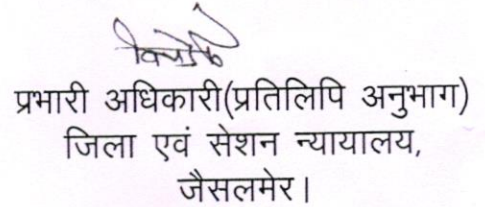 प्रभारी अधिकारी(प्रतिलिपि अनुभाग)
जिला एवं सेशन न्यायालय,
जैसलमेर।